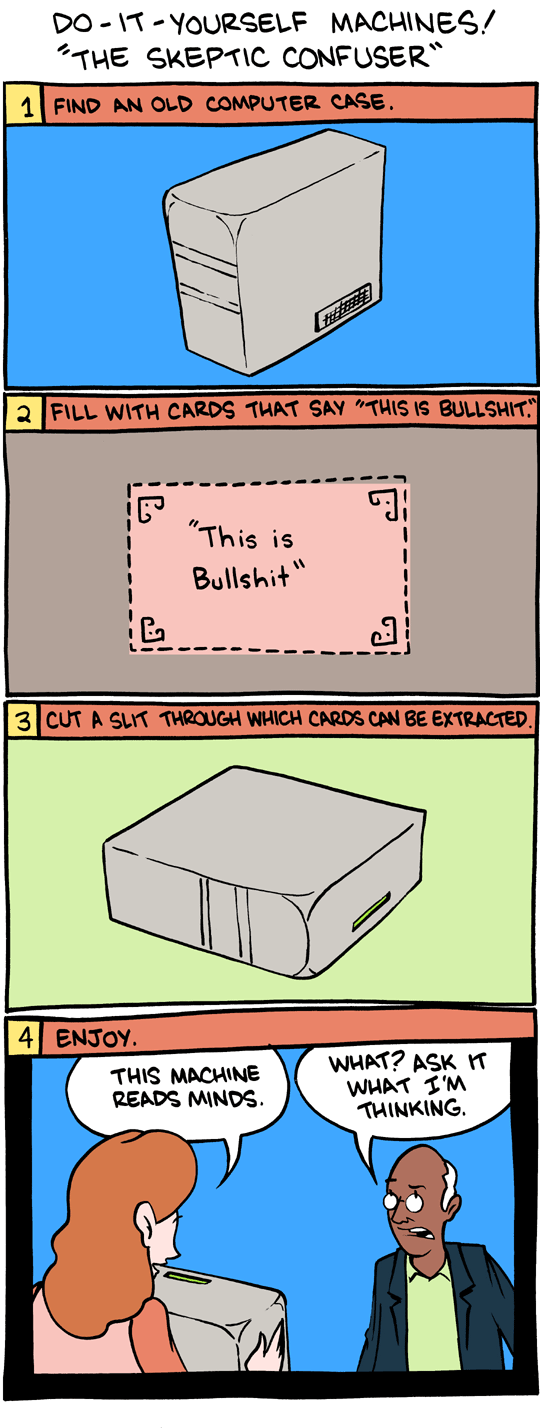 DO-IT-YOURSELF MACHINES!
"THE SKEPTIC CONFUSER"
1 FIND AN OLD COMPUTER CASE.
2 FILL WITH CARDS THAT SAY "THIS IS BULLSHIT."
"This is
Bullshit"
3 CUT A SLIT THROUGH WHICH CARDS CAN BE EXTRACTED.
4 ENJOY.
THIS MACHINE
READS MINDS.
WHAT? ASK IT
WHAT I'M
THINKING.